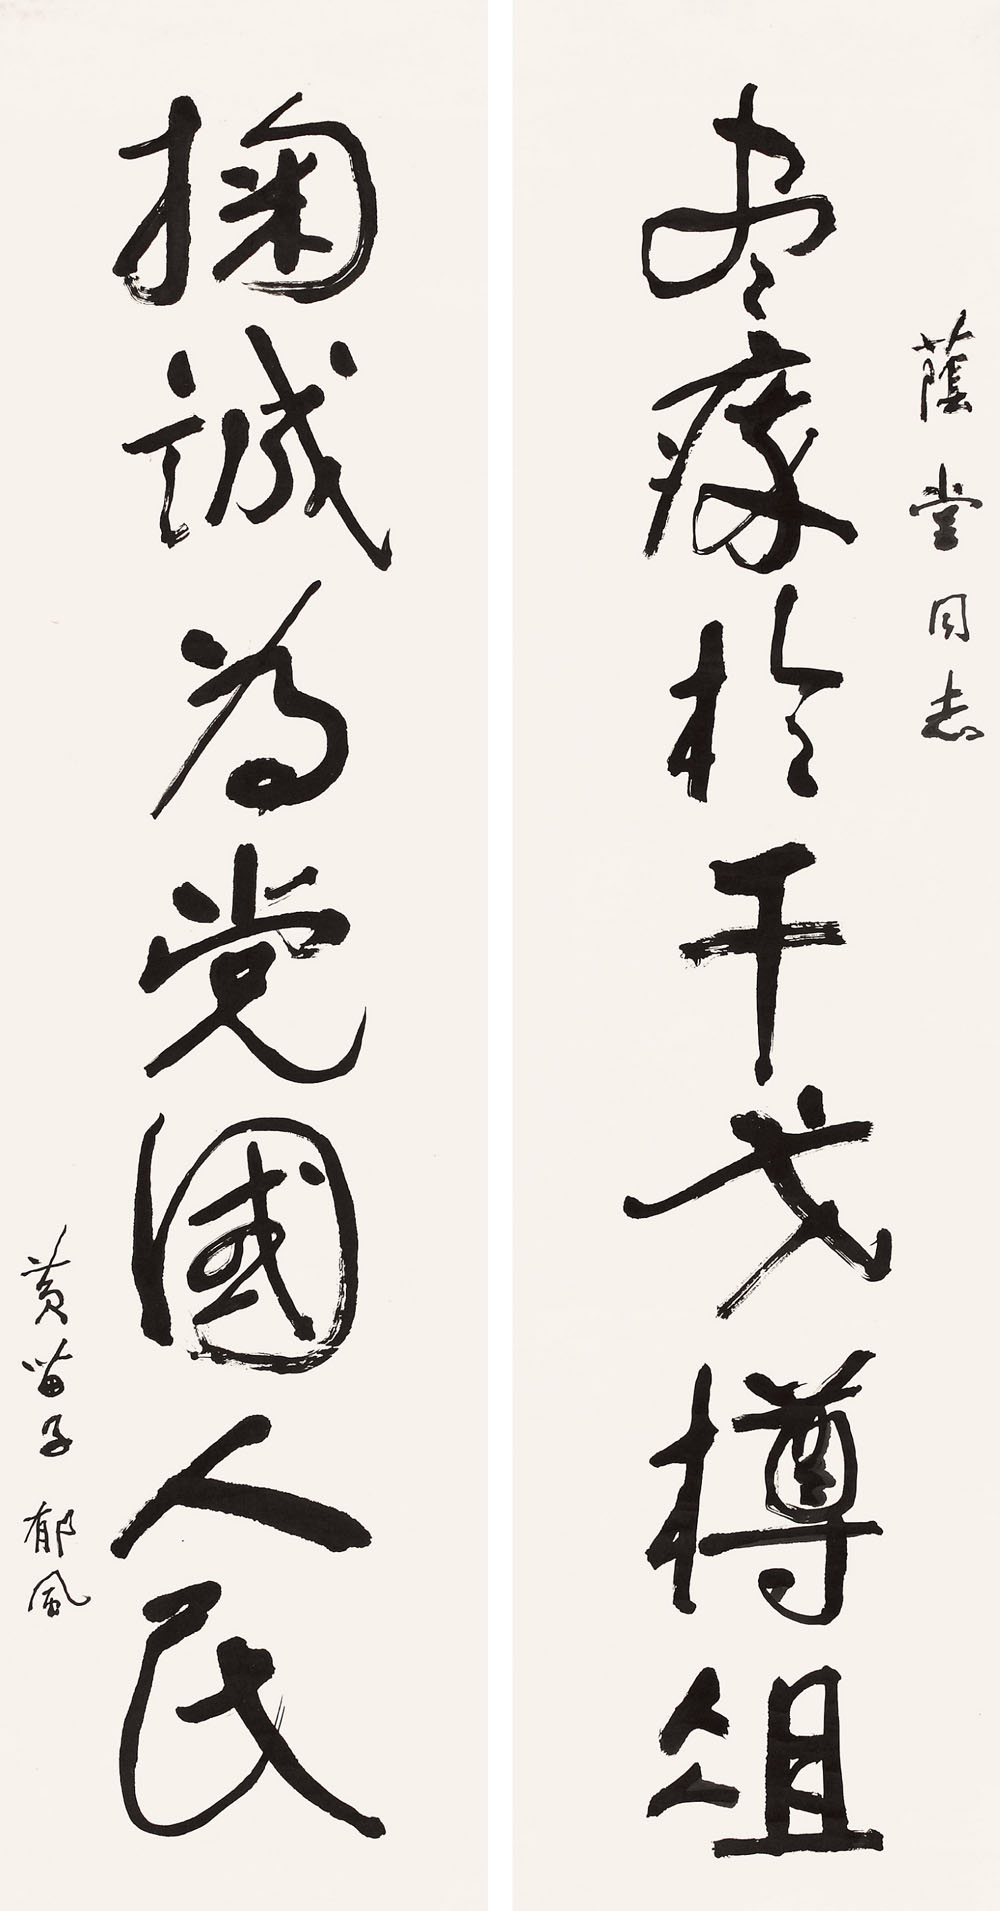 蔭堂同志
尽瘁於干戈樽俎
掬誠為党國人民
黄苗子 郁風